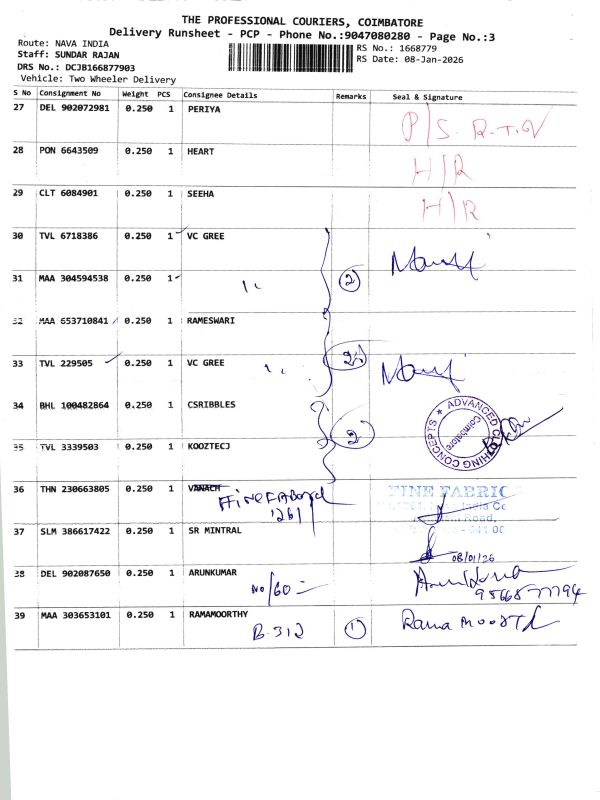 THE PROFESSIONAL COURIERS, COIMBATORE
Delivery Runsheet - PCP - Phone No.:9047080280 - Page No.:3
Route: NAVA INDIA
Staff: SUNDAR RAJAN
DRS No.: DCJB166877903
Vehicle: Two Wheeler Delivery
RS No.: 1668779
RS Date: 08-Jan-2026
S No Consignment No Weight PCS Consignee Details Remarks Seal & Signature
27 DEL 902072981 0.250 1 PERIYA P/S. R.T.V
28 PON 6643509 0.250 1 HEART H/R
29 CLT 6084901 0.250 1 SEEHA H/R
30 TVL 6718386 0.250 1 VC GREE
31 MAA 304594538 0.250 1 2
32 MAA 653710841 0.250 1 RAMESWARI
33 TVL 229505 0.250 1 VC GREE 2
34 BHL 100482864 0.250 1 CSRIBBLES
ADVANCED CLOTHING CONCEPTS
Coimbatore
35 TVL 3339503 0.250 1 KOOZTECJ 2
36 THN 230663805 0.250 1 VANACH
1261
FINE FABRIC
India Co
Road,
37 SLM 386617422 0.250 1 SR MINTRAL
08/01/26
38 DEL 902087650 0.250 1 ARUNKUMAR
NO/60
39 MAA 303653101 0.250 1 RAMAMOORTHY
B.312 1